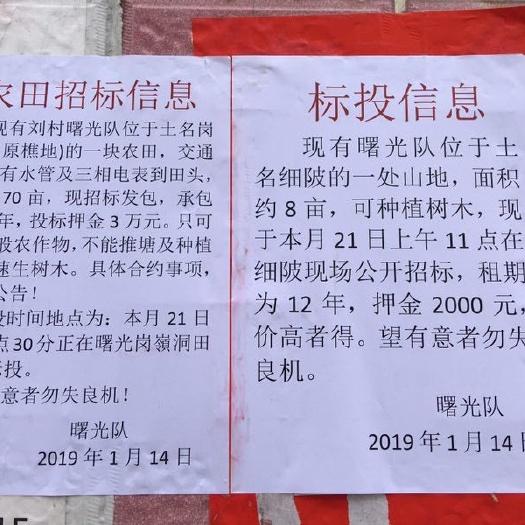 农田招标信息
现有刘村曙光队位于土名岗
原樵地)的一块农田，交通
有水管及三相电表到田头，
70亩，现招标发包，承包
年，投标押金3万元。只可
股农作物，不能推塘及种植
速生树木。具体合约事项，
公告！
投时间地点为：本月21日
点30分正在曙光岗嶺洞田
投。
意者勿失良机！
曙光队
2019年1月14日
标投信息
现有曙光队位于土
名细陂的一处山地，面积
约8亩，可种植树木，现
于本月21日上午11点在
细陂现场公开招标，租期
为12年，押金2000元，
价高者得。望有意者勿失
良机。
曙光队
2019年1月14日